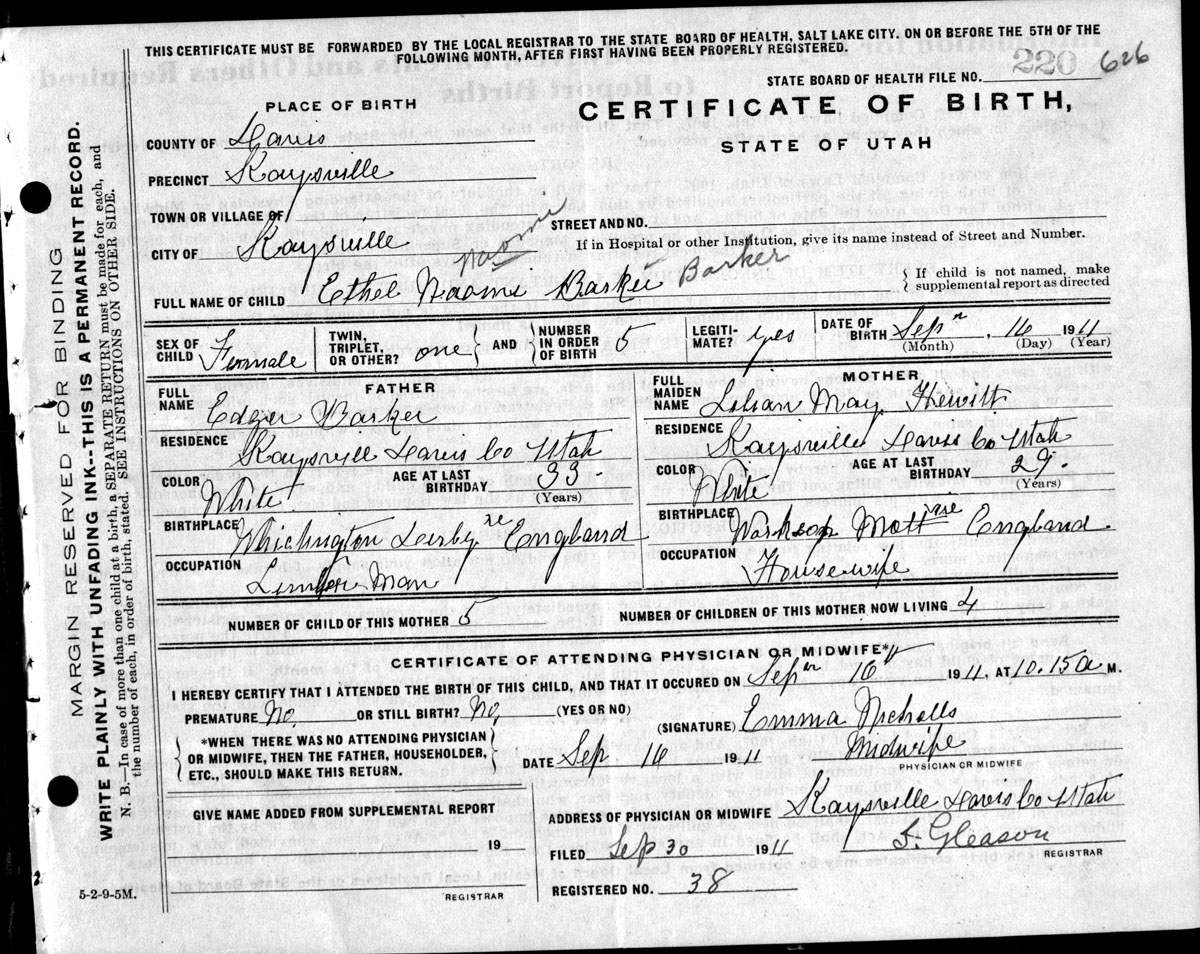 THIS CERTIFICATE MUST BE FORWARDED BY THE LOCAL REGISTRAR TO THE STATE BOARD OF HEALTH, SALT LAKE CITY. ON OR BEFORE THE 5TH OF THE
FOLLOWING MONTH, AFTER FIRST HAVING BEEN PROPERLY REGISTERED.
STATE BOARD OF HEALTH FILE NO. 220 626
PLACE OF BIRTH
CERTIFICATE OF BIRTH,
STATE OF UTAH
COUNTY OF Davis
PRECINCT Kaysville
TOWN OR VILLAGE OF
STREET AND NO.
CITY OF Kaysville
If in Hospital or other Institution, give its name instead of Street and Number.
Naomi Barker
FULL NAME OF CHILD Ethel Naomi Barker
If child is not named, make
supplemental report as directed
SEX OF CHILD Female TWIN, TRIPLET, OR OTHER? one AND NUMBER IN ORDER OF BIRTH 5 LEGITI-MATE? yes DATE OF BIRTH Sep, 16 1911
(Month) (Day) (Year)
FATHER
FULL NAME Edger Barker
RESIDENCE Kaysvill Davis Co Utah
COLOR White AGE AT LAST BIRTHDAY 33
(Years)
BIRTHPLACE Whichington Derby re England
OCCUPATION
MOTHER
FULL MAIDEN NAME Lilian May Hewitt
RESIDENCE Kaysville Davis Co Utah
COLOR White AGE AT LAST BIRTHDAY 29.
(Years)
BIRTHPLACE England
OCCUPATION Housewife
NUMBER OF CHILD OF THIS MOTHER 5 NUMBER OF CHILDREN OF THIS MOTHER NOW LIVING 4
CERTIFICATE OF ATTENDING PHYSICIAN OR MIDWIFE*
I HEREBY CERTIFY THAT I ATTENDED THE BIRTH OF THIS CHILD, AND THAT IT OCCURED ON Sep 16 1911, AT 10.15 a M.
PREMATURE No. OR STILL BIRTH? No, (YES OR NO)
(SIGNATURE) Emma Nicholls
*WHEN THERE WAS NO ATTENDING PHYSICIAN
OR MIDWIFE, THEN THE FATHER, HOUSEHOLDER,
ETC., SHOULD MAKE THIS RETURN.
DATE Sep. 16 1911 Midwife
PHYSICIAN OR MIDWIFE
GIVE NAME ADDED FROM SUPPLEMENTAL REPORT
19
REGISTRAR
ADDRESS OF PHYSICIAN OR MIDWIFE Kaysville Davis Co Utah
FILED Sep 30 1911 Gleason
REGISTRAR
REGISTERED NO. 38
5-2-9-5M.
MARGIN RESERVED FOR BINDING
WRITE PLAINLY WITH UNFADING INK--THIS IS A PERMANENT RECORD.
N. B.—In case of more than one child at a birth, a SEPARATE RETURN must be made for each, and
the number of each, in order of birth, stated. SEE INSTRUCTIONS ON OTHER SIDE.